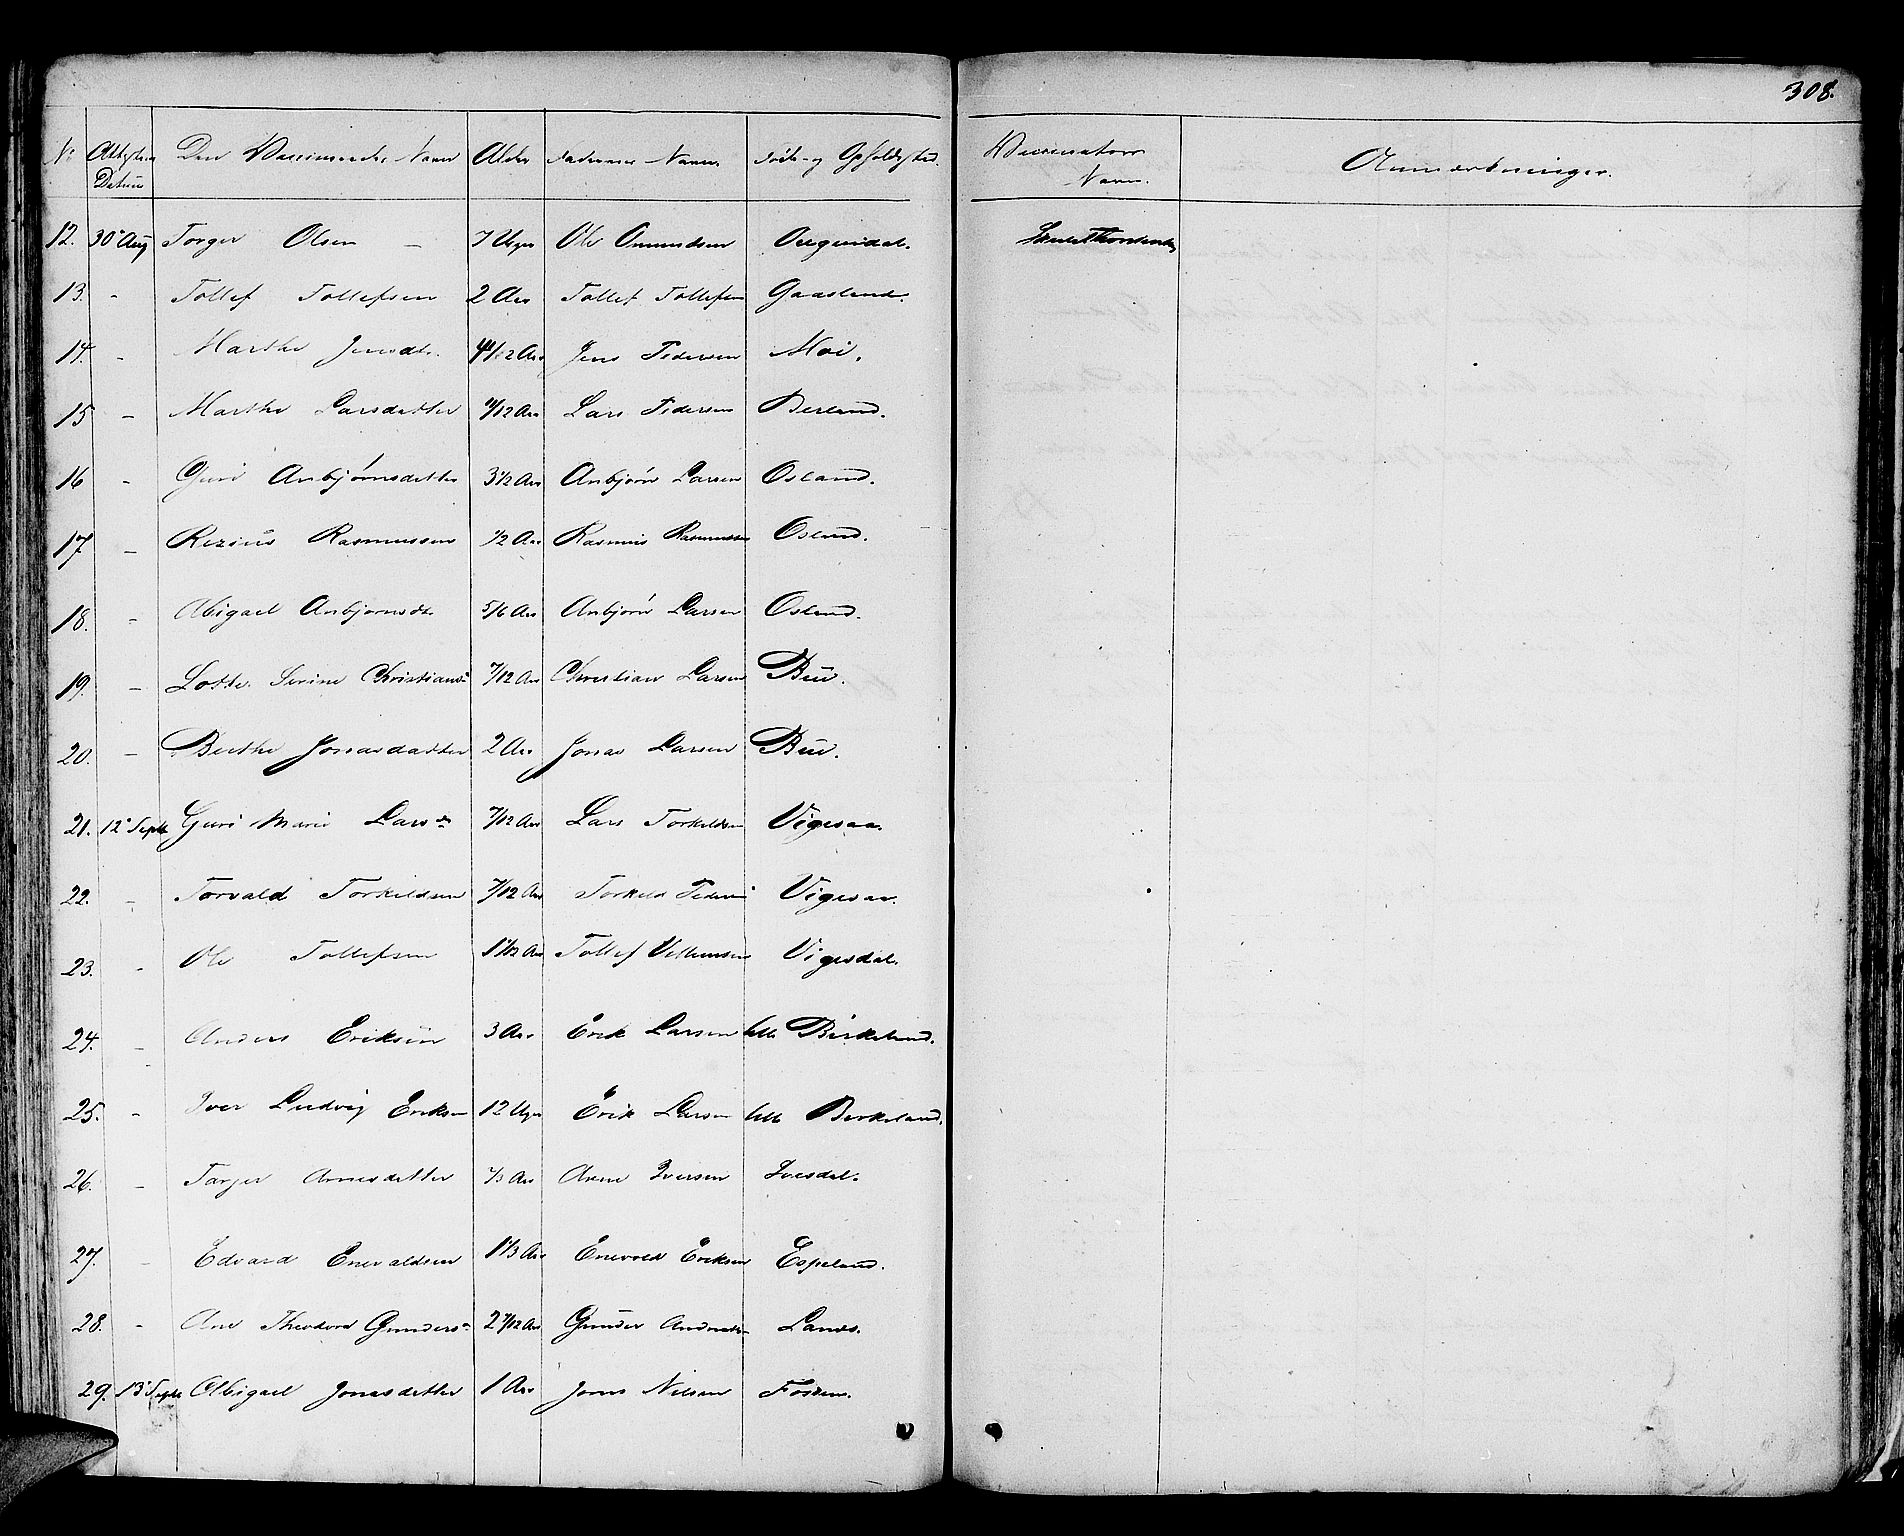 308.
No Attestens Datum Den Vaccineredes Navn Alder Faderens Navn Føde- og Opholdssted. Vaccinators Navn. Anmærkninger.
12. 30' Aug Torger Olsen 7 Uger Ole Omundsen Augendal.
13. - Tollef Tollefsen 2 Aar Tollef Tollefsen Gaasland.
14. - Marthe Jensdtr. 4 4/12 Aar Jens Pedersen Moi.
15 - Marthe Larsdatter 11/12 Aar Lars Pedersen Berland.
16 - Guri Anbjørnsdatter 3 1/2 Aar Anbjørn Larsen Osland.
17. - Rasmussen 1/2 Aar Rasmus Rasmussen Osland.
18. - Abigael Anbjørnsdtr 5/6 Aar Anbjørn Larsen Osland.
19. - Lotte Serine Christians- 7/12 Aar Christian Larsen Bue.
20. - Berthe Jonasdatter 2 Aar Jonas Larsen Bue.
21. 12' Septr Guri Marie Larsdr 7/12 Aar Lars Torkildsen Vigesaa.
22. - Torvald Torkildsen 7/12 Aar Torkild Pedersen Vigesaa.
23. - Ole Tollefsen 1 1/12 Aar Tollef Villumsen Vigesdal.
24. - Anders Eriksen 3 Aar Erik Larsen lille Birkeland.
25. - Iver Ludvig Eriksen 12 Uger Erik Larsen lille Birkeland.
26. - Arnesdatter 2/3 Aar Arne Iversen Ivesdal.
27. - Edvard Enevaldsen 1 1/3 Aar Enevold Eriksen Espeland.
28. - Ane Theodora Gunders- 2 7/12 Aar Gunder Lands.
29. 13' Septr Abigael Jonasdatter 1 Aar Jonas Nilsen Fossen.